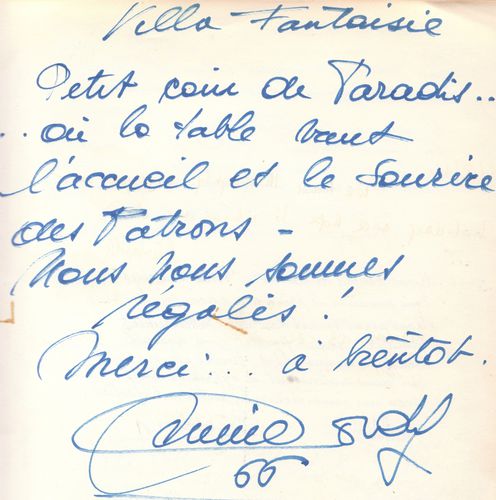 Villa Fantaisie
Petit coin de Paradis..
..où la table vaut
l'accueil et le Sourire
des Patrons -
Nous nous sommes
régalés !
Merci... à bientôt.
Annie Cordy
66